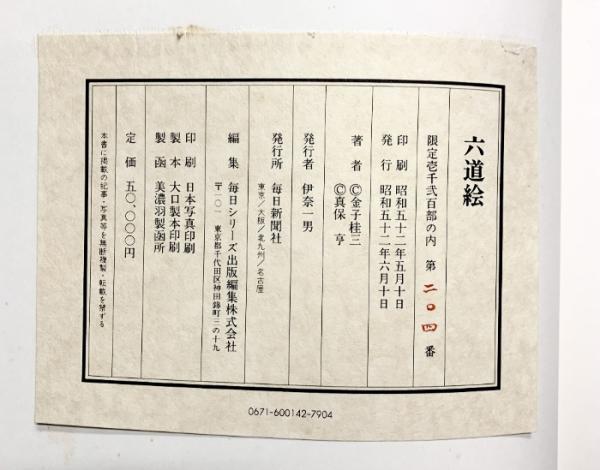 六道絵
限定壱千弐百部の内　第二〇四番
印　刷　昭和五十二年五月十日
発　行　昭和五十二年六月十日
著　者　©金子桂三
©真保　亨
発行者　伊奈一男
発行所　毎日新聞社
東京／大阪／北九州／名古屋
編　集　毎日シリーズ出版編集株式会社
〒一〇一　東京都千代田区神田錦町三の十九
印　刷　日本写真印刷
製　本　大口製本印刷
製　函　美濃羽製函所
定　価　五〇、〇〇〇円
本書に掲載の記事・写真等を無断複製・転載を禁ずる
0671-600142-7904